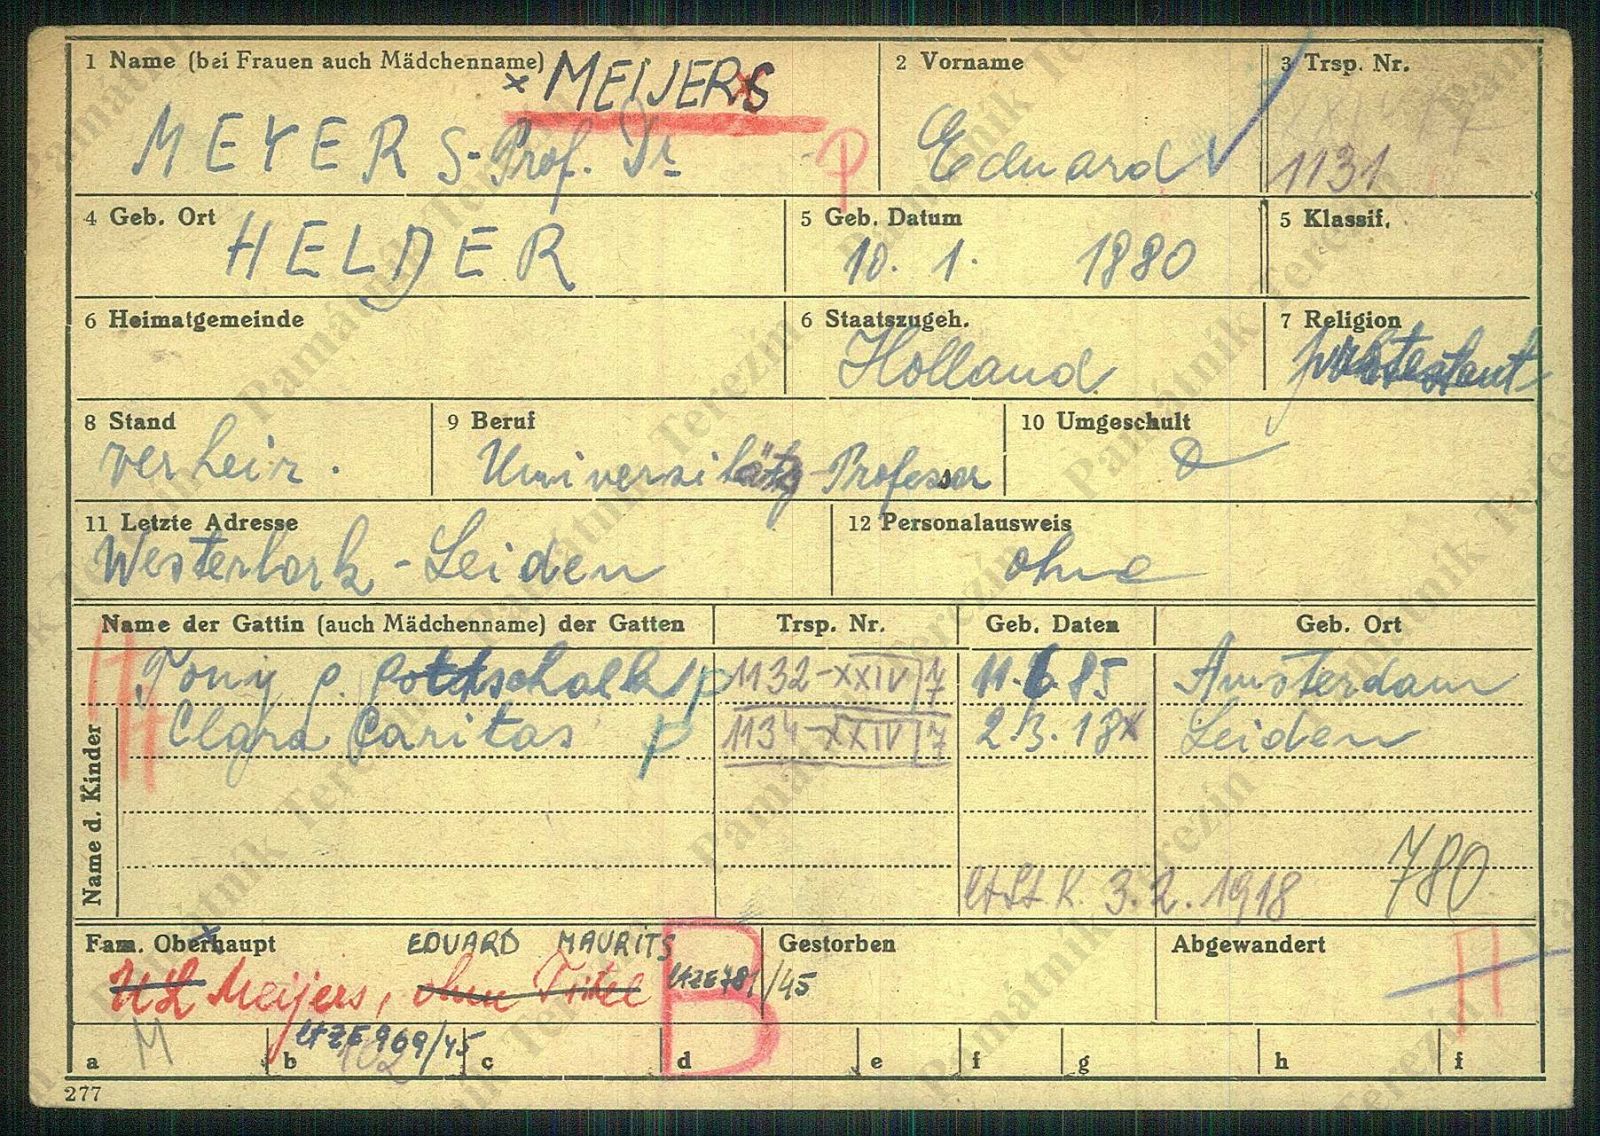 1 Name (bei Frauen auch Mädchenname) × MEIJERS
MEYERS - Prof. Dr P
2 Vorname
Eduard
3 Trsp. Nr.
1131
4 Geb. Ort
HELDER
5 Geb. Datum
10. 1. 1880
5 Klassif.
6 Heimatgemeinde
6 Staatszugeh.
Holland
7 Religion
protestant
8 Stand
verheir.
9 Beruf
Universitäts-Professor
10 Umgeschult
11 Letzte Adresse
Westerbork - Leiden
12 Personalausweis
ohne
Name der Gattin (auch Mädchenname) der Gatten Trsp. Nr. Geb. Daten Geb. Ort
Tony g. Gottschalk p 1132-XXIV/7 11.6.85 Amsterdam
Clara Caritas p 1134-XXIV/7 2.3.18 Leiden
Name d. Kinder
780
lt St. K. 3.2.1918
Fam. Oberhaupt EDUARD MAURITS
Meijers, ohne Titel lt ZE 781/45
B
Gestorben
Abgewandert
a M b lt ZE 969/45 c d e f g h f
102
277
Památník Terezín